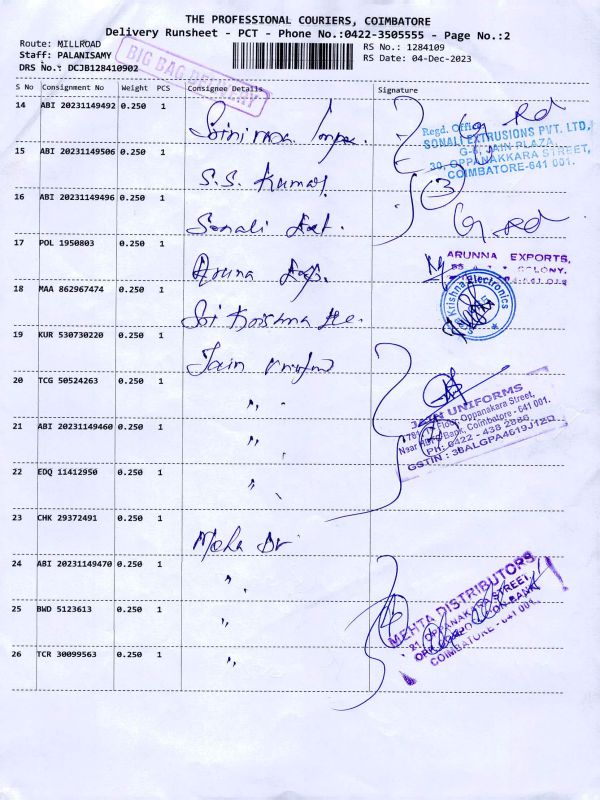 THE PROFESSIONAL COURIERS, COIMBATORE
Delivery Runsheet - PCT - Phone No.:0422-3505555 - Page No.:2
Route: MILLROAD
RS No.: 1284109
Staff: PALANISAMY
RS Date: 04-Dec-2023
DRS No.: DCJB128410902
BIG BAG DELIVERY
S No Consignment No Weight PCS Consignee Details Signature
14 ABI 20231149492 0.250 1
15 ABI 20231149506 0.250 1 S.S. Kumar
16 ABI 20231149496 0.250 1 Sonali
17 POL 1950803 0.250 1 Aruna
18 MAA 862967474 0.250 1 Sri Krishna
19 KUR 530730220 0.250 1 Jain
20 TCG 50524263 0.250 1 "
21 ABI 20231149460 0.250 1 "
22 EDQ 11412950 0.250 1 "
23 CHK 29372491 0.250 1
24 ABI 20231149470 0.250 1 "
25 BWD 5123613 0.250 1 "
26 TCR 30099563 0.250 1 "
Regd. Office
SONALI EXTRUSIONS PVT. LTD,
G-6, JAIN PLAZA,
30, OPPANAKKARA STREET,
COIMBATORE-641 001.
3
ARUNNA EXPORTS,
COLONY,
Krishna Electronics
JAIN UNIFORMS
Floor, Oppanakara Street,
Near HDFC Bank, Coimbatore - 641 001.
PH: 0422 - 438 2086
MEHTA DISTRIBUTORS
21 OPPANAKARA STREET,
COIMBATORE - 641 001.